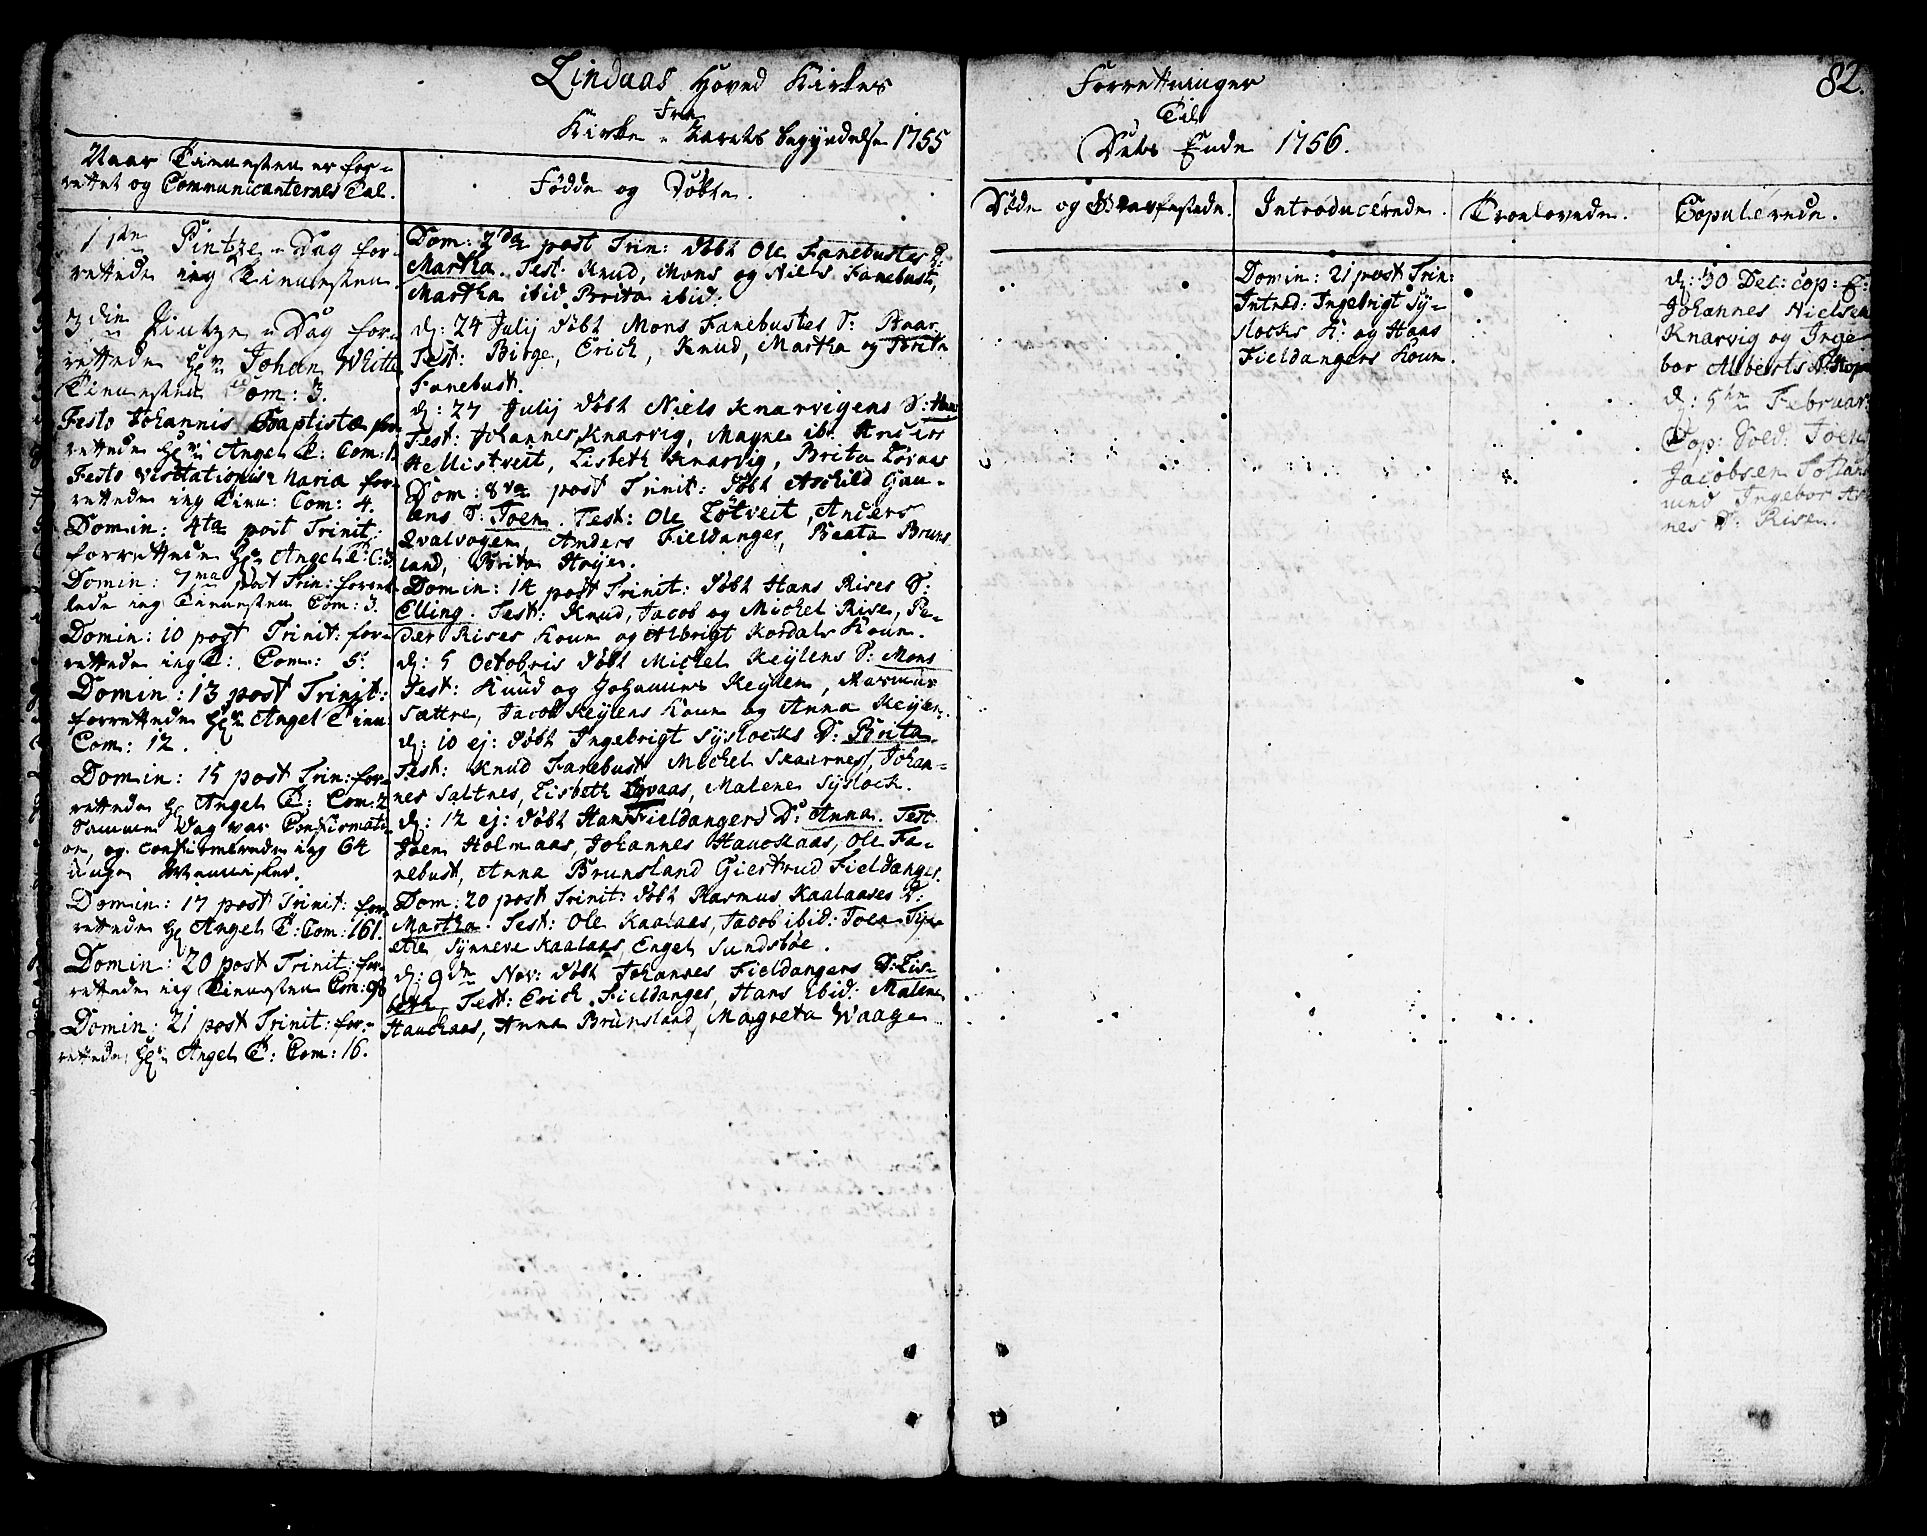 Lindaas Hoved Kirkes Forretninger
82.
Fra Til
Kirke-Aarets begyndelse 1755 Dets Ende 1756.
Naar Tienesten er for-
rettet og Communicanternes Tal.
1ste Pintze-Dag for-
rettede ieg Tienesten
3die Pintze-Dag for-
rettede Hr Johan Witte
Tienesten Com: 3.
Festo Johannis Baptistæ for-
rettede Hr Angel T: Com: 1
Festo Visitationis Maria for-
rettede ieg Tien: Com: 4.
Domin: 4ta post Trinit:
forrettede Hr Angel T: C: 3
Domin: 7ma post Trin: forret-
tede ieg Tienesten Com: 3.
Domin: 10 post Trinit: for-
rettede ieg T: Com: 5.
Domin: 13 post Trinit:
forrettede Hr Angel Tien:
Com: 12.
Domin: 15 post Trin: for-
rettede Hr Angel T: Com: 2
Samme Dag var Confirmati-
on, og confirmerede ieg 64
unge Mennisker.
Domin: 17 post Trinit: for-
rettede Hr Angel T: Com: 161.
Domin: 20 post Trinit: for-
rettede ieg Tienesten Com: 98
Domin: 21 post Trinit: for-
rettede Hr Angel T: Com: 16.
Fødde og Døbte.
Dom: 2da post Trin: døbt Ole Fanebustes D:
Martha. Test: Knud, Mons og Niels Fanebust,
Martha ibid. Brita ibid:
d: 24 Julij døbt Mons Fanebustes S: Baar
Test: Birge, Erich, Knud, Martha og Brita
Fanebust.
d: 27 Julij døbt Niels Knarvigens S:
Test: Johannes Knarvig, Magne ib: Anders
Hellistveit, Lisbeth Knarvig, Brita
Dom: 8va post Trinit: døbt Aschild Gau-
lens S: Joen. Test: Ole Løtveit, Anders
Qvalvogen, Anders Fieldanger, Beata Bruns-
land, Brita Høye.
Domin: 14 post Trinit: døbt Hans Rises S:
Elling. Test: Knud, Jacob og Michel Rise, Pe-
der Rises Kone og Albrigt Kordals Kone.
d: 5 Octobris døbt Michel Keylens S: Mons
Test: Knud og Johannes Keylen, Rasmus
Sættre, Jacob Keylens Kone og Anna Keylen.
d: 10 ej: døbt Ingebrigt Syslocks D: Brita.
Test: Knud Fanebust Michel Skaarnes, Johan-
nes Saltnes, Lisbeth Løvaas, Malene Syslock.
d: 12 ej: døbt Hans Fieldangers D: Anna. Test:
Joen Holmaas, Johannes Hauckaas, Ole Fa-
nebust, Anna Brunsland Giertrud Fieldanger.
Dom: 20 post Trinit: døbt Rasmus Kaalaases D:
Martha. Test: Ole Kaalaas, Jacob ibid: Joen
Synneve Kaalaas, Engel Sundsbøe.
d: 9de Nov: døbt Johannes Fieldangers D: Lis-
beth, Test: Erich Fieldanger, Hans ibid: Malene
Hauckaas, Anna Brunsland, Magreta Waage
Døde og Begrafvede.
Introducerede.
Domin: 21 post Trin:
Introd: Ingebrigt Sy-
slocks K: og Haas
Fieldangers Kone.
Troelovede.
Copulerede.
d: 30 Dec: cop: E:
Johannes Nielsen
Knarvig og Inge-
bor Alberts D:
d: 5te Februar:
Cop: Sold: Joen
Jacobsen
med Ingebor
nes D: Rise.